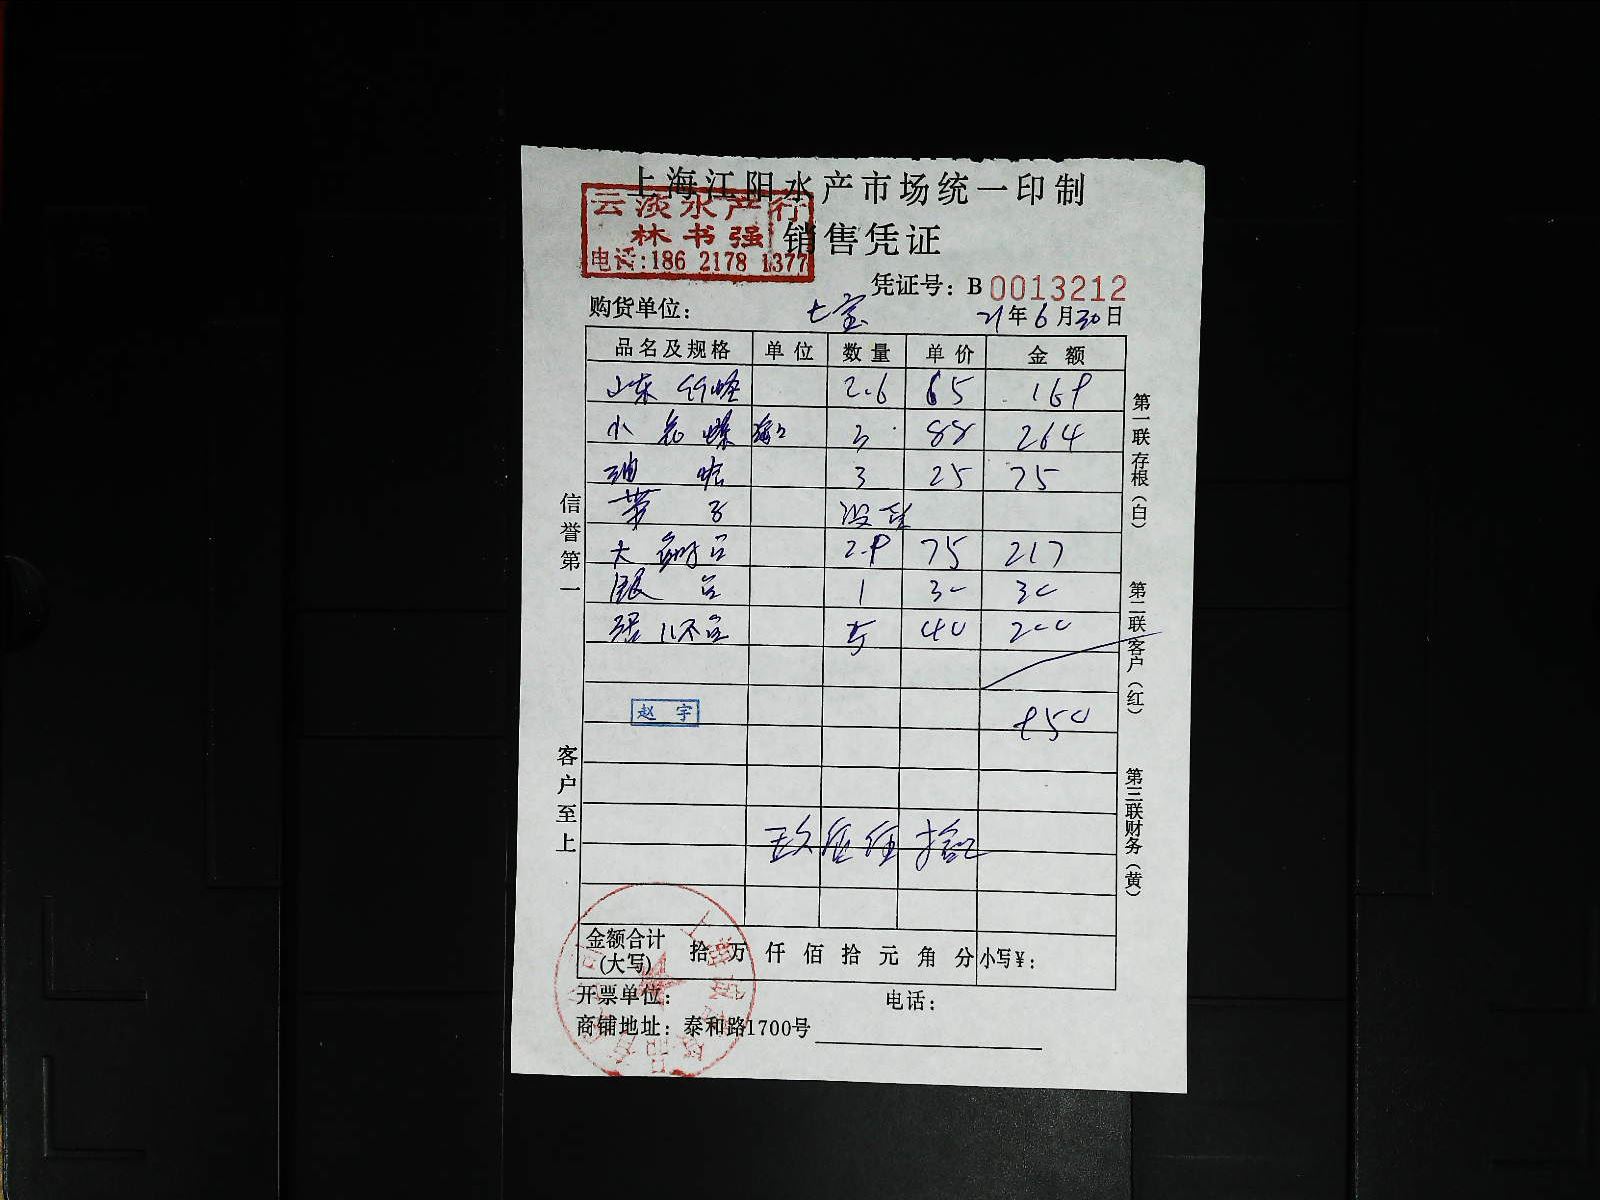 上海江阳水产市场统一印制
云淡水产行
林书强
电话:186 2178 1377
销售凭证
凭证号: B 0013212
购货单位: 七宝 21年6月30日
品名及规格 单位 数量 单价 金额
山东 2.6 65 169
小花螺 3 88 264
3 25 75
子
大 2.9 75 217
1 30 30
5 40 200
赵宇 950
拾
金额合计(大写) 拾 万 仟 佰 拾 元 角 分 小写¥:
开票单位: 电话:
商铺地址: 泰和路1700号
信誉第一
客户至上
第一联存根(白)
第二联客户(红)
第三联财务(黄)